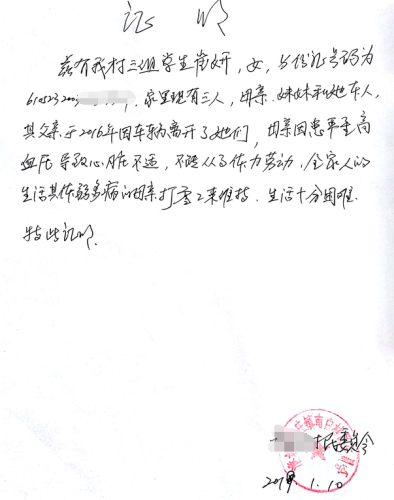 证明
兹有我村三组学生崔妍，女，身份证号码为
610523200，家里现有三人，母亲、妹妹和她本人，
其父亲于2016年因车祸离开了她们，母亲因患严重高
血压导致心脏不适，不能从事体力劳动，全家人的
生活其体弱多病的母亲打零工来维持，生活十分困难
特此证明.
村民委员会
1.10